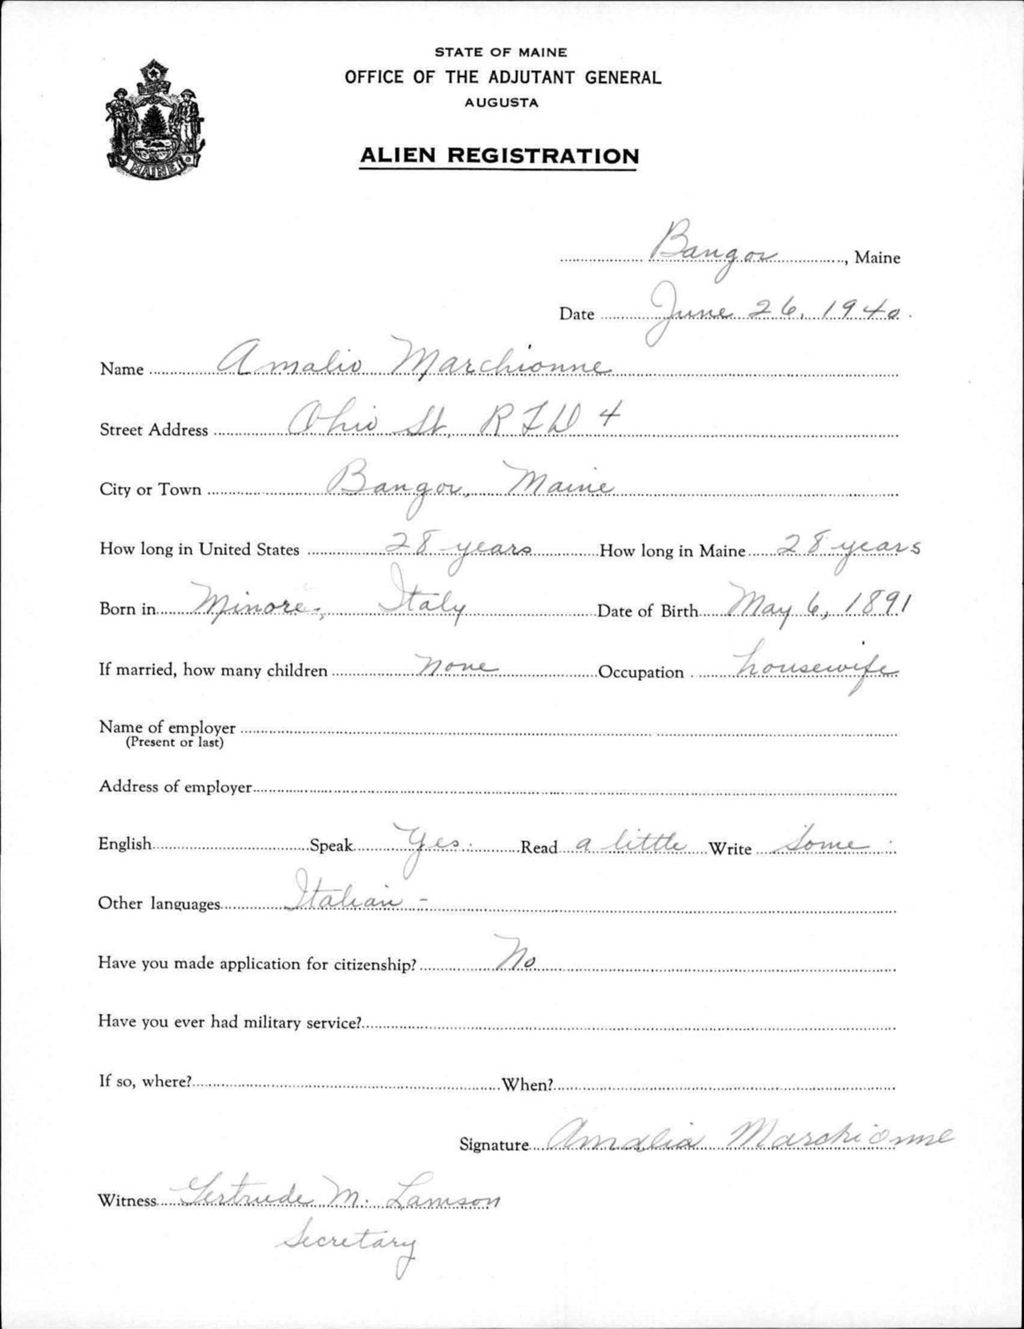 STATE OF MAINE
OFFICE OF THE ADJUTANT GENERAL
AUGUSTA
ALIEN REGISTRATION
MAINE
Bangor, Maine
Date June 26, 1940.
Name Amalio Marchionne
Street Address Ohio St. RFD 4
City or Town Bangor, Maine
How long in United States 28 years How long in Maine 28 years
Born in Minore, Italy Date of Birth May 6, 1891
If married, how many children none Occupation housewife
Name of employer
(Present or last)
Address of employer
English Speak Yes. Read a little Write Some
Other languages Italian -
Have you made application for citizenship? No
Have you ever had military service?
If so, where? When?
Signature Amalia Marchionne
Witness Gertrude M. Lamson
Secretary